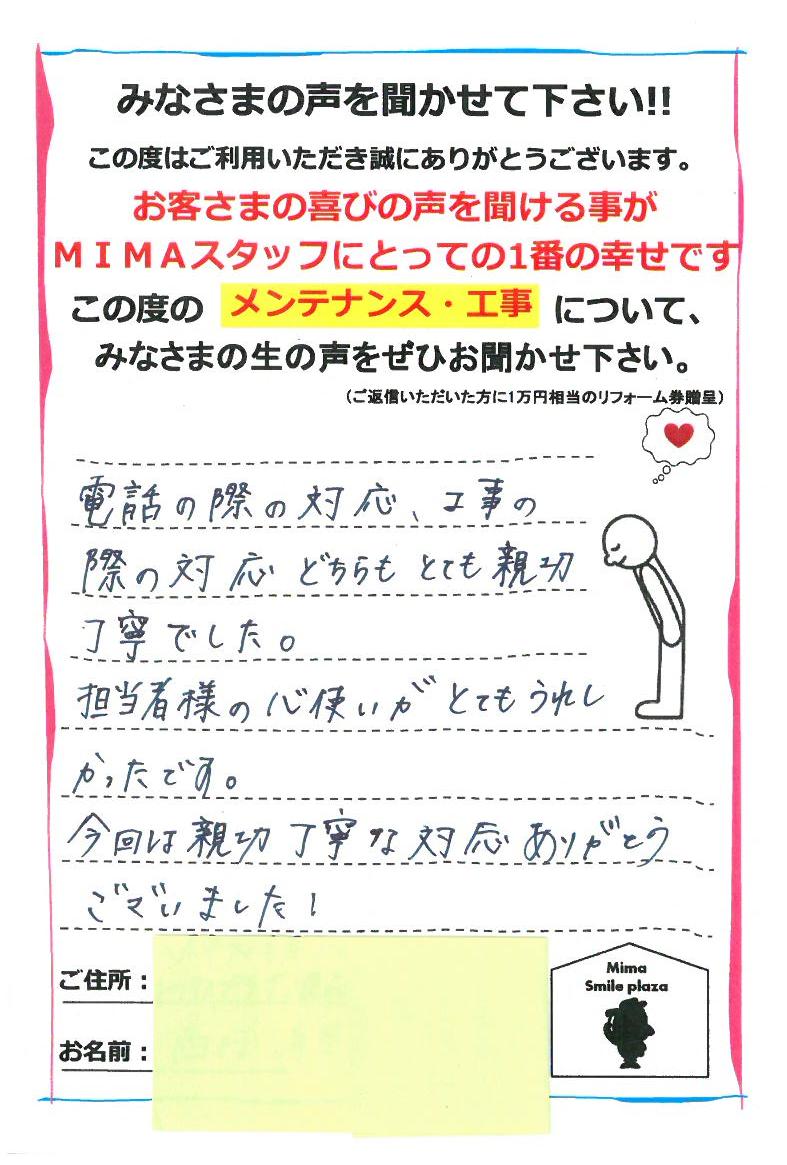 みなさまの声を聞かせて下さい!!
この度はご利用いただき誠にありがとうございます。
お客さまの喜びの声を聞ける事が
ＭＩＭＡスタッフにとっての1番の幸せです
この度の メンテナンス・工事 について、
みなさまの生の声をぜひお聞かせ下さい。
（ご返信いただいた方に1万円相当のリフォーム券贈呈）
電話の際の対応、工事の
際の対応どちらもとても親切
丁寧でした。
担当者様の心使いがとてもうれし
かったです。
今回は親切丁寧な対応ありがとう
ございました!
ご住所：
お名前：
Mima
Smile plaza